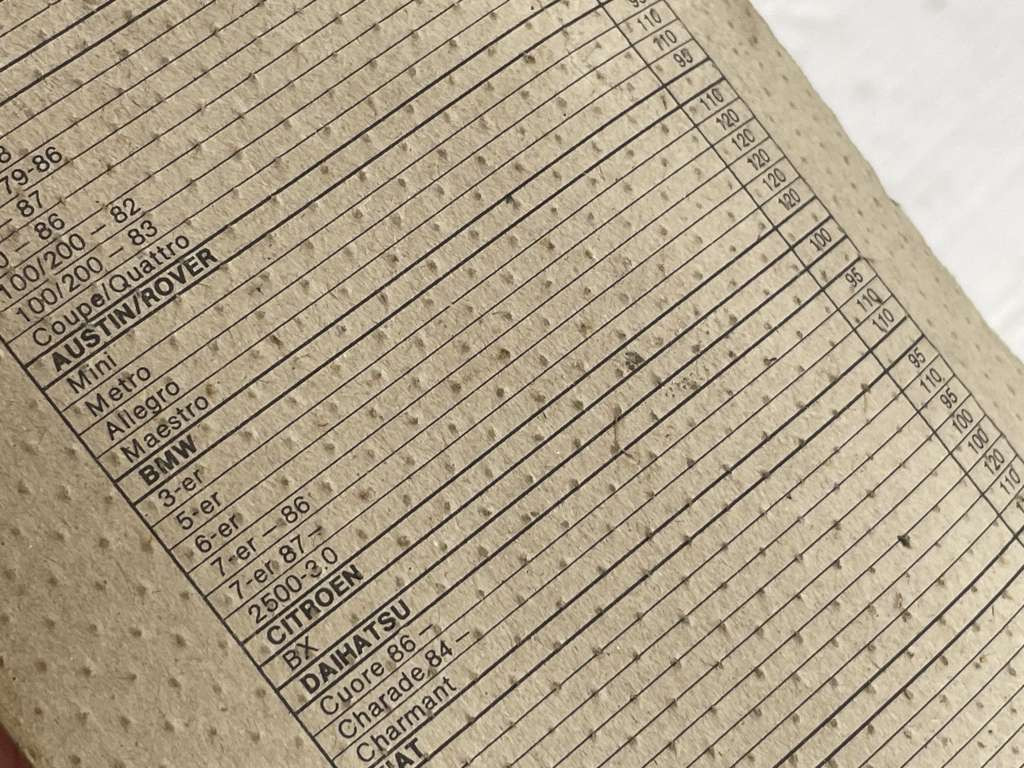 8
79-86
– 87
– 86
100/200 – 82
100/200 – 83
Coupe/Quattro
AUSTIN/ROVER
Mini
Metro 110
Allegro 110
Maestro 95
BMW
3-er 110
5-er 120
6-er 120
7-er – 86 120
7-er 87 – 120
2500-3.0 120
CITROEN
BX 100
DAIHATSU
Cuore 86 – 95
Charade 84 – 110
Charmant 110
IAT
95
110
95
100
100
120
110